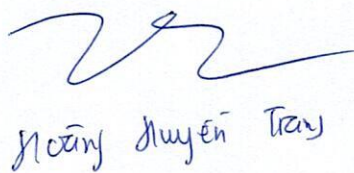 Hoàng Huyền Trang